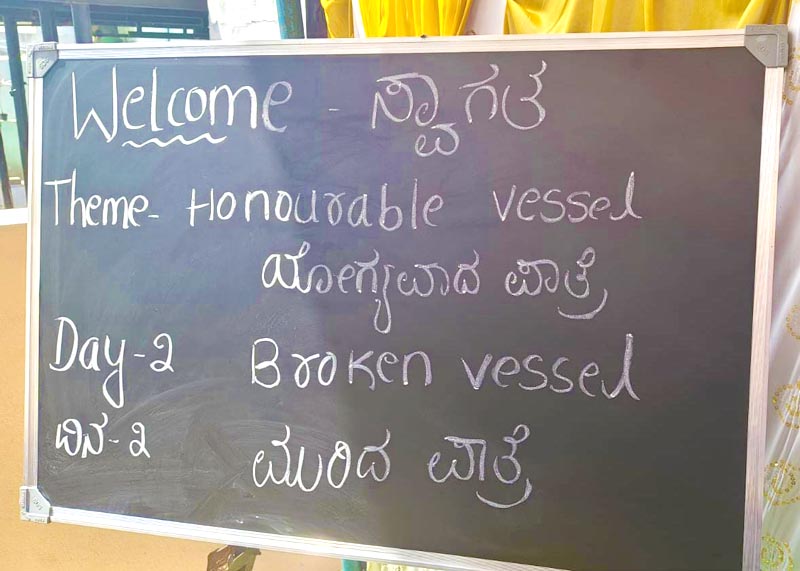 Welcome - ಸ್ವಾಗತ
Theme- Honourable vessel
ಯೋಗ್ಯವಾದ ಪಾತ್ರೆ
Day-2 Broken vessel
ದಿನ-2 ಮುರಿದ ಪಾತ್ರೆ